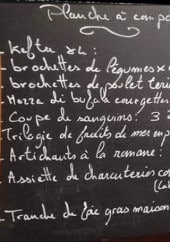 Planche à compo
- Kefta x4 :
- brochettes de légumes x
- brochettes de poulet teri
- Mozza di bufala courgettes
- Coupe de sanguins : 3
Trilogie de fruits de mer en p
- Artichauts à la romaine :
- Assiette de charcuteries co
- Tranche de foie gras maison